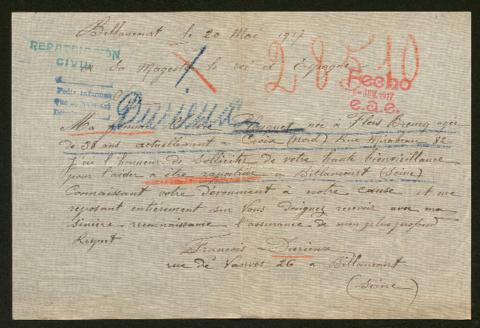 Billancourt le 20 Mai 1917
REPATRIATION
CIVIL
28510
A sa Majesté le roi d'Espagne
Fecho
JUN. 1917
e.a.e.
Pedir informes
Darieux
Ma née à Flers Breucq agée
de 36 ans actuellement à Croix (Nord) Rue Mirabeau 52
J'ai l'honneur de solliciter de votre haute bienveillance
pour l'aider à être rapatriée à Billancourt (Seine)
Connaissant votre dévouement à notre cause et me
reposant entièrement sur Vous daignez recevoir avec ma
sincère reconnaissance l'assurance de mon plus profond
Respect
François Darieux
rue de Vanves 26 à Billancourt
(Seine)